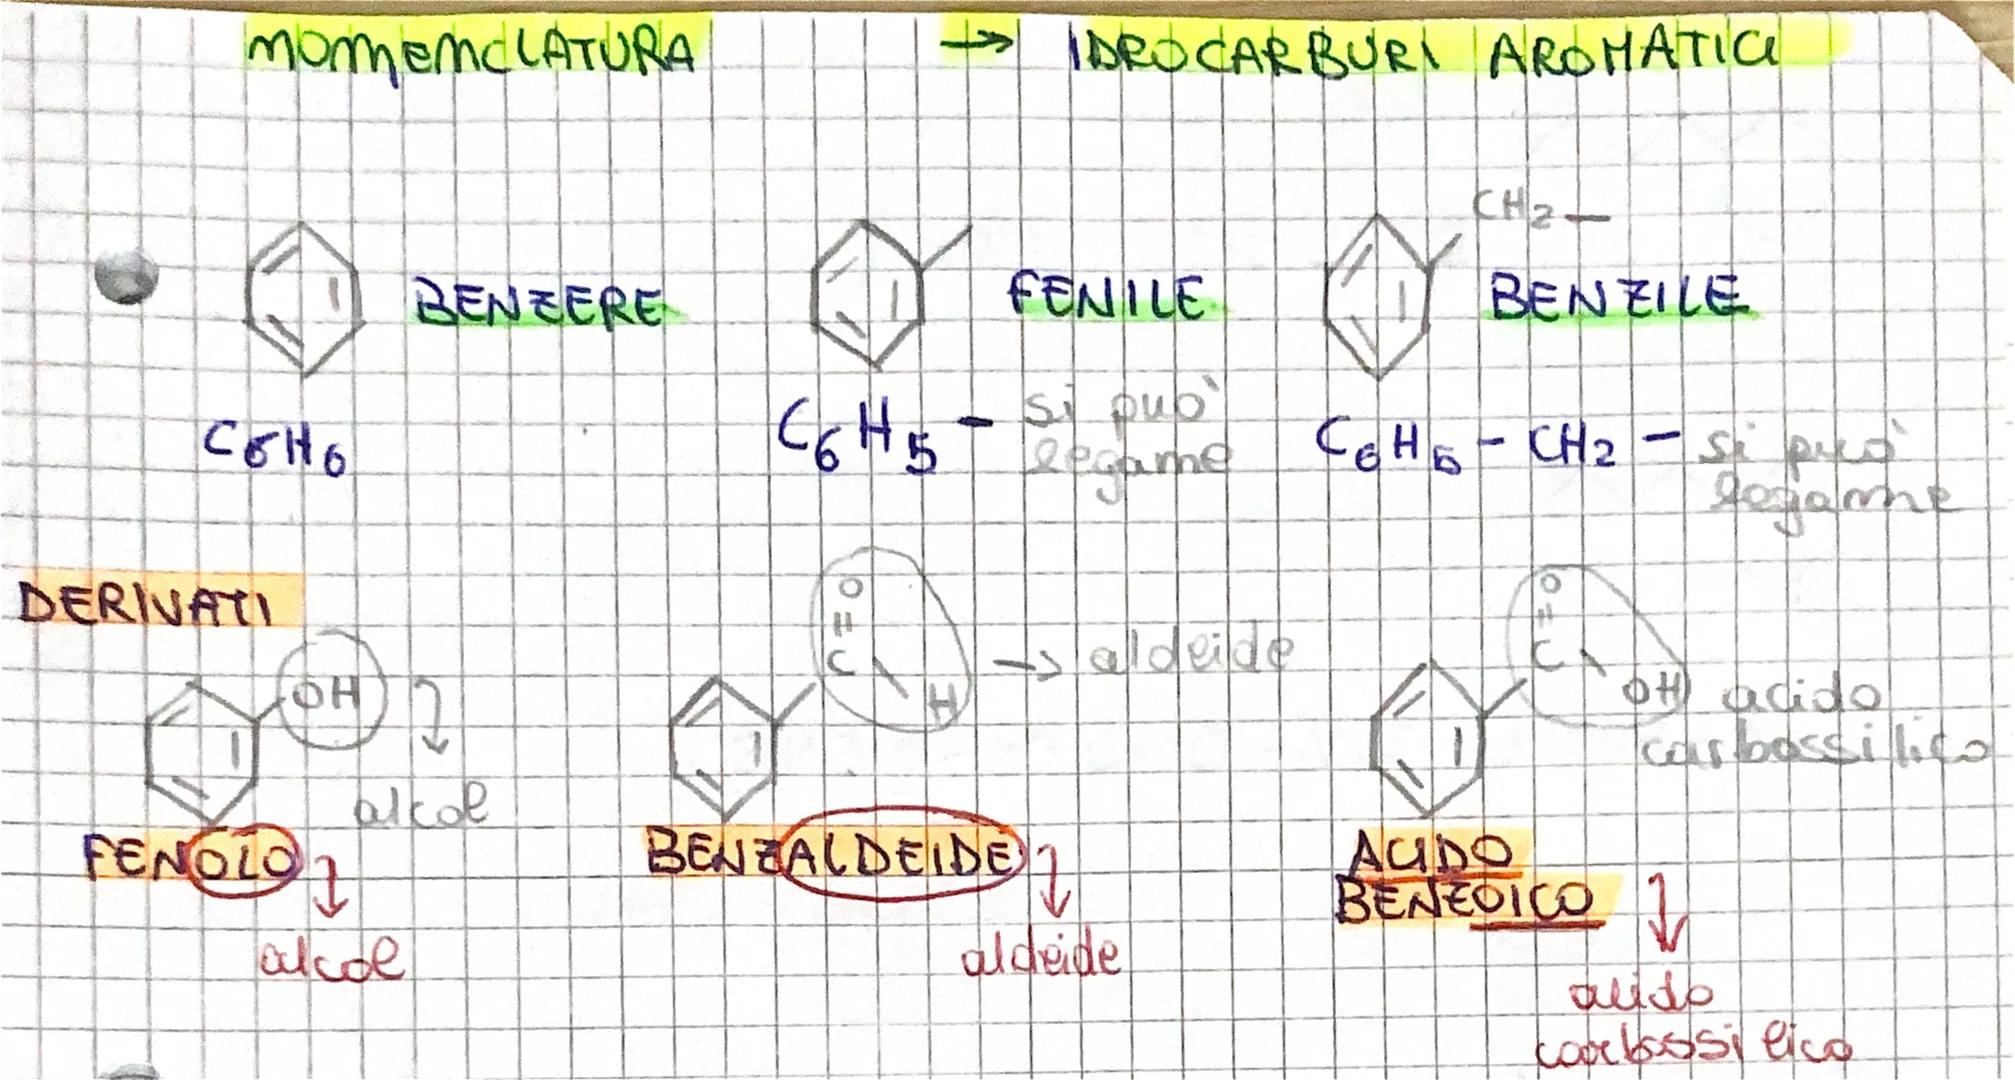 NOMENCLATURA → IDROCARBURI AROMATICI
CH2 —
BENZERE FENILE BENZILE
C6H6 C6H5 - si può legame C6H5 - CH2 - si può legame
DERIVATI
OH
alcol
O
=
C
H
→ aldeide
O
=
C
OH
acido
carbossilico
FENOLO BENZALDEIDE ACIDO
BENZOICO
alcol aldeide acido
carbossilico